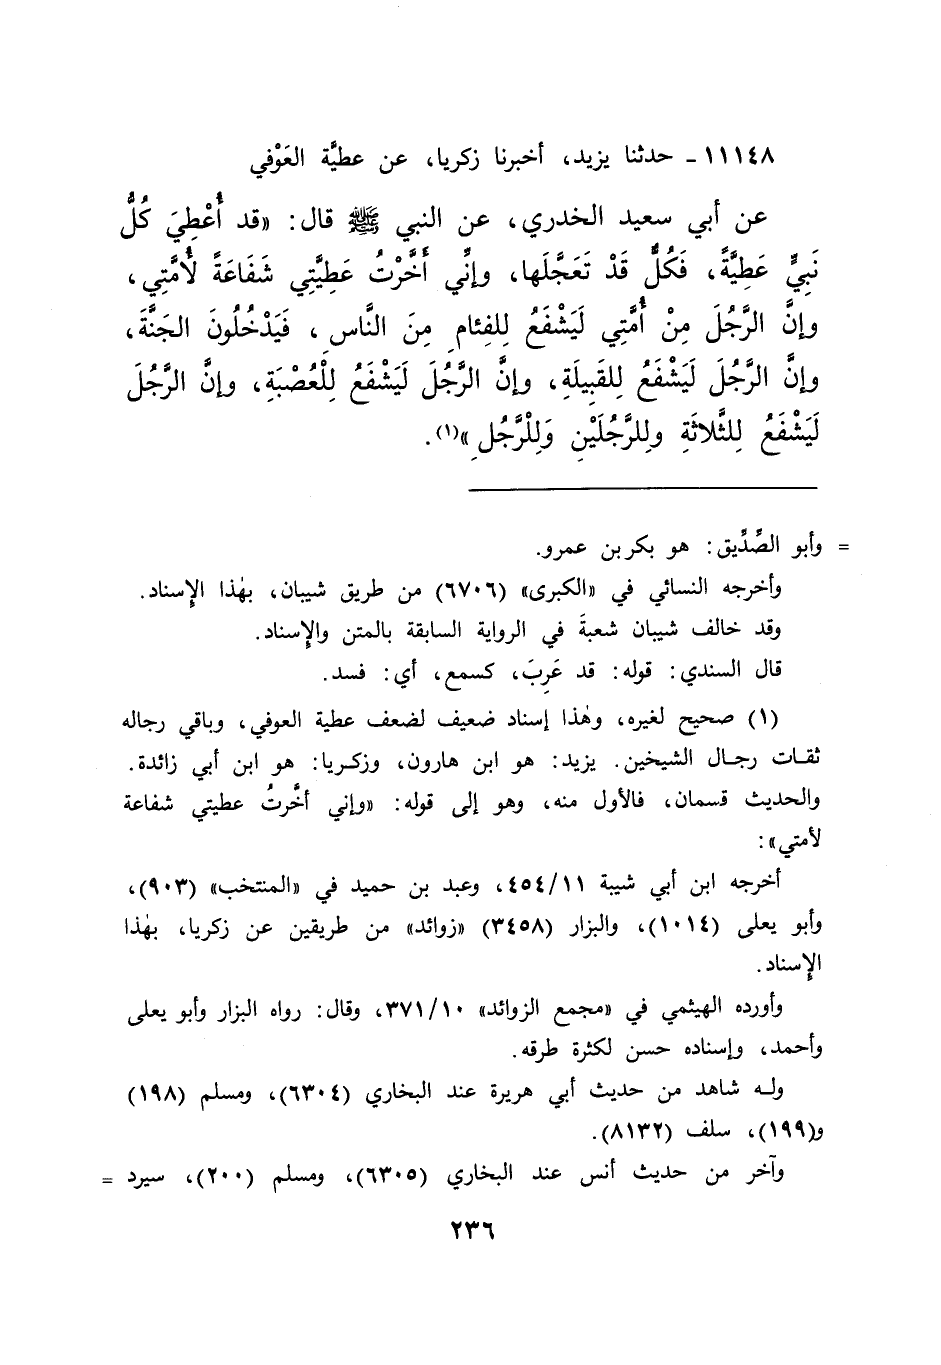 ١١١٤٨ـ حدثنا يزيد، أخبرنا زكريا، عن عطيَّة العَوْفي
عن أبي سعيد الخدري، عن النبي ﷺ قال: «قد أُعْطِيَ كُلُّ
نَبِيٍّ عَطِيَّةً، فَكُلٌّ قَدْ تَعَجَّلَها، وإنِّي أَخَّرْتُ عَطِيَّتِي شَفَاعَةً لأُمَّتِي،
وإنَّ الرَّجُلَ مِنْ أُمَّتِي لَيَشْفَعُ لِلفِئامِ مِنَ النَّاسِ، فَيَدْخُلُونَ الجَنَّةَ،
وإنَّ الرَّجُلَ لَيَشْفَعُ لِلقَبِيلَةِ، وإنَّ الرَّجُلَ لَيَشْفَعُ لِلْعُصْبَةِ، وإنَّ الرَّجُلَ
لَيَشْفَعُ لِلثَّلاثَةِ ولِلرَّجُلَيْنِ وَلِلْرَّجُلِ»(١).
= وأبو الصِّدِّيق: هو بكر بن عمرو.
وأخرجه النسائي في «الكبرى» (٦٧٠٦) من طريق شيبان، بهٰذا الإِسناد.
وقد خالف شيبان شعبةَ في الرواية السابقة بالمتن والإِسناد.
قال السندي: قوله: قد عَرِبَ، كسمع، أي: فسد.
(١) صحيح لغيره، وهٰذا إسناد ضعيف لضعف عطية العوفي، وباقي رجاله
ثقات رجال الشيخين. يزيد: هو ابن هارون، وزكريا: هو ابن أبي زائدة.
والحديث قسمان، فالأول منه، وهو إلى قوله: «وإني أخَّرتُ عطيتي شفاعة
لأمتي»:
أخرجه ابن أبي شيبة ٤٥٤/١١، وعبد بن حميد في «المنتخب» (٩٠٣)،
وأبو يعلى (١٠١٤)، والبزار (٣٤٥٨) «زوائد» من طريقين عن زكريا، بهٰذا
الإِسناد.
وأورده الهيثمي في «مجمع الزوائد» ٣٧١/١٠، وقال: رواه البزار وأبو يعلى
وأحمد، وإسناده حسن لكثرة طرقه.
وله شاهد من حديث أبي هريرة عند البخاري (٦٣٠٤)، ومسلم (١٩٨)
و(١٩٩)، سلف (٨١٣٢).
وآخر من حديث أنس عند البخاري (٦٣٠٥)، ومسلم (٢٠٠)، سيرد =
٢٣٦